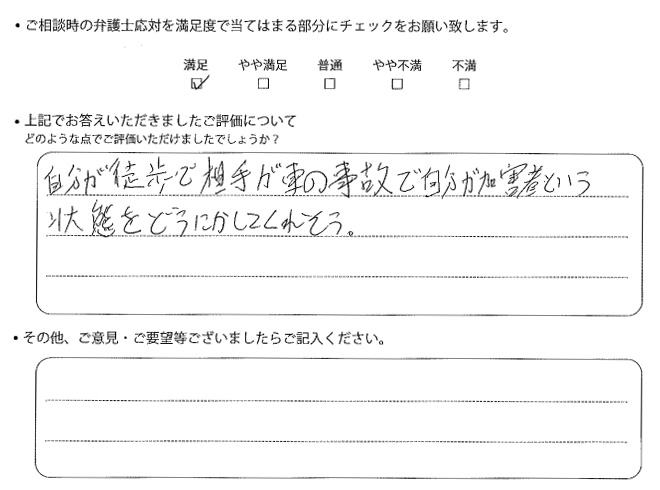 ・ご相談時の弁護士応対を満足度で当てはまる部分にチェックをお願い致します。
満足 やや満足 普通 やや不満 不満
・上記でお答えいただきましたご評価について
どのような点でご評価いただけましたでしょうか？
自分が徒歩で相手が車の事故で自分が加害者という
状態をどうにかしてくれそう。
・その他、ご意見・ご要望等ございましたらご記入ください。